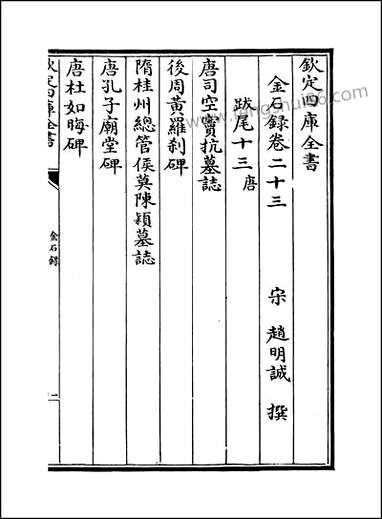 欽定四庫全書
金石錄卷二十三
宋 趙明誠 撰
跋尾十三 唐
唐司空竇抗墓誌
後周黃羅刹碑
隋桂州總管侯莫陳穎墓誌
唐孔子廟堂碑
唐杜如晦碑
欽定四庫全書
金石錄